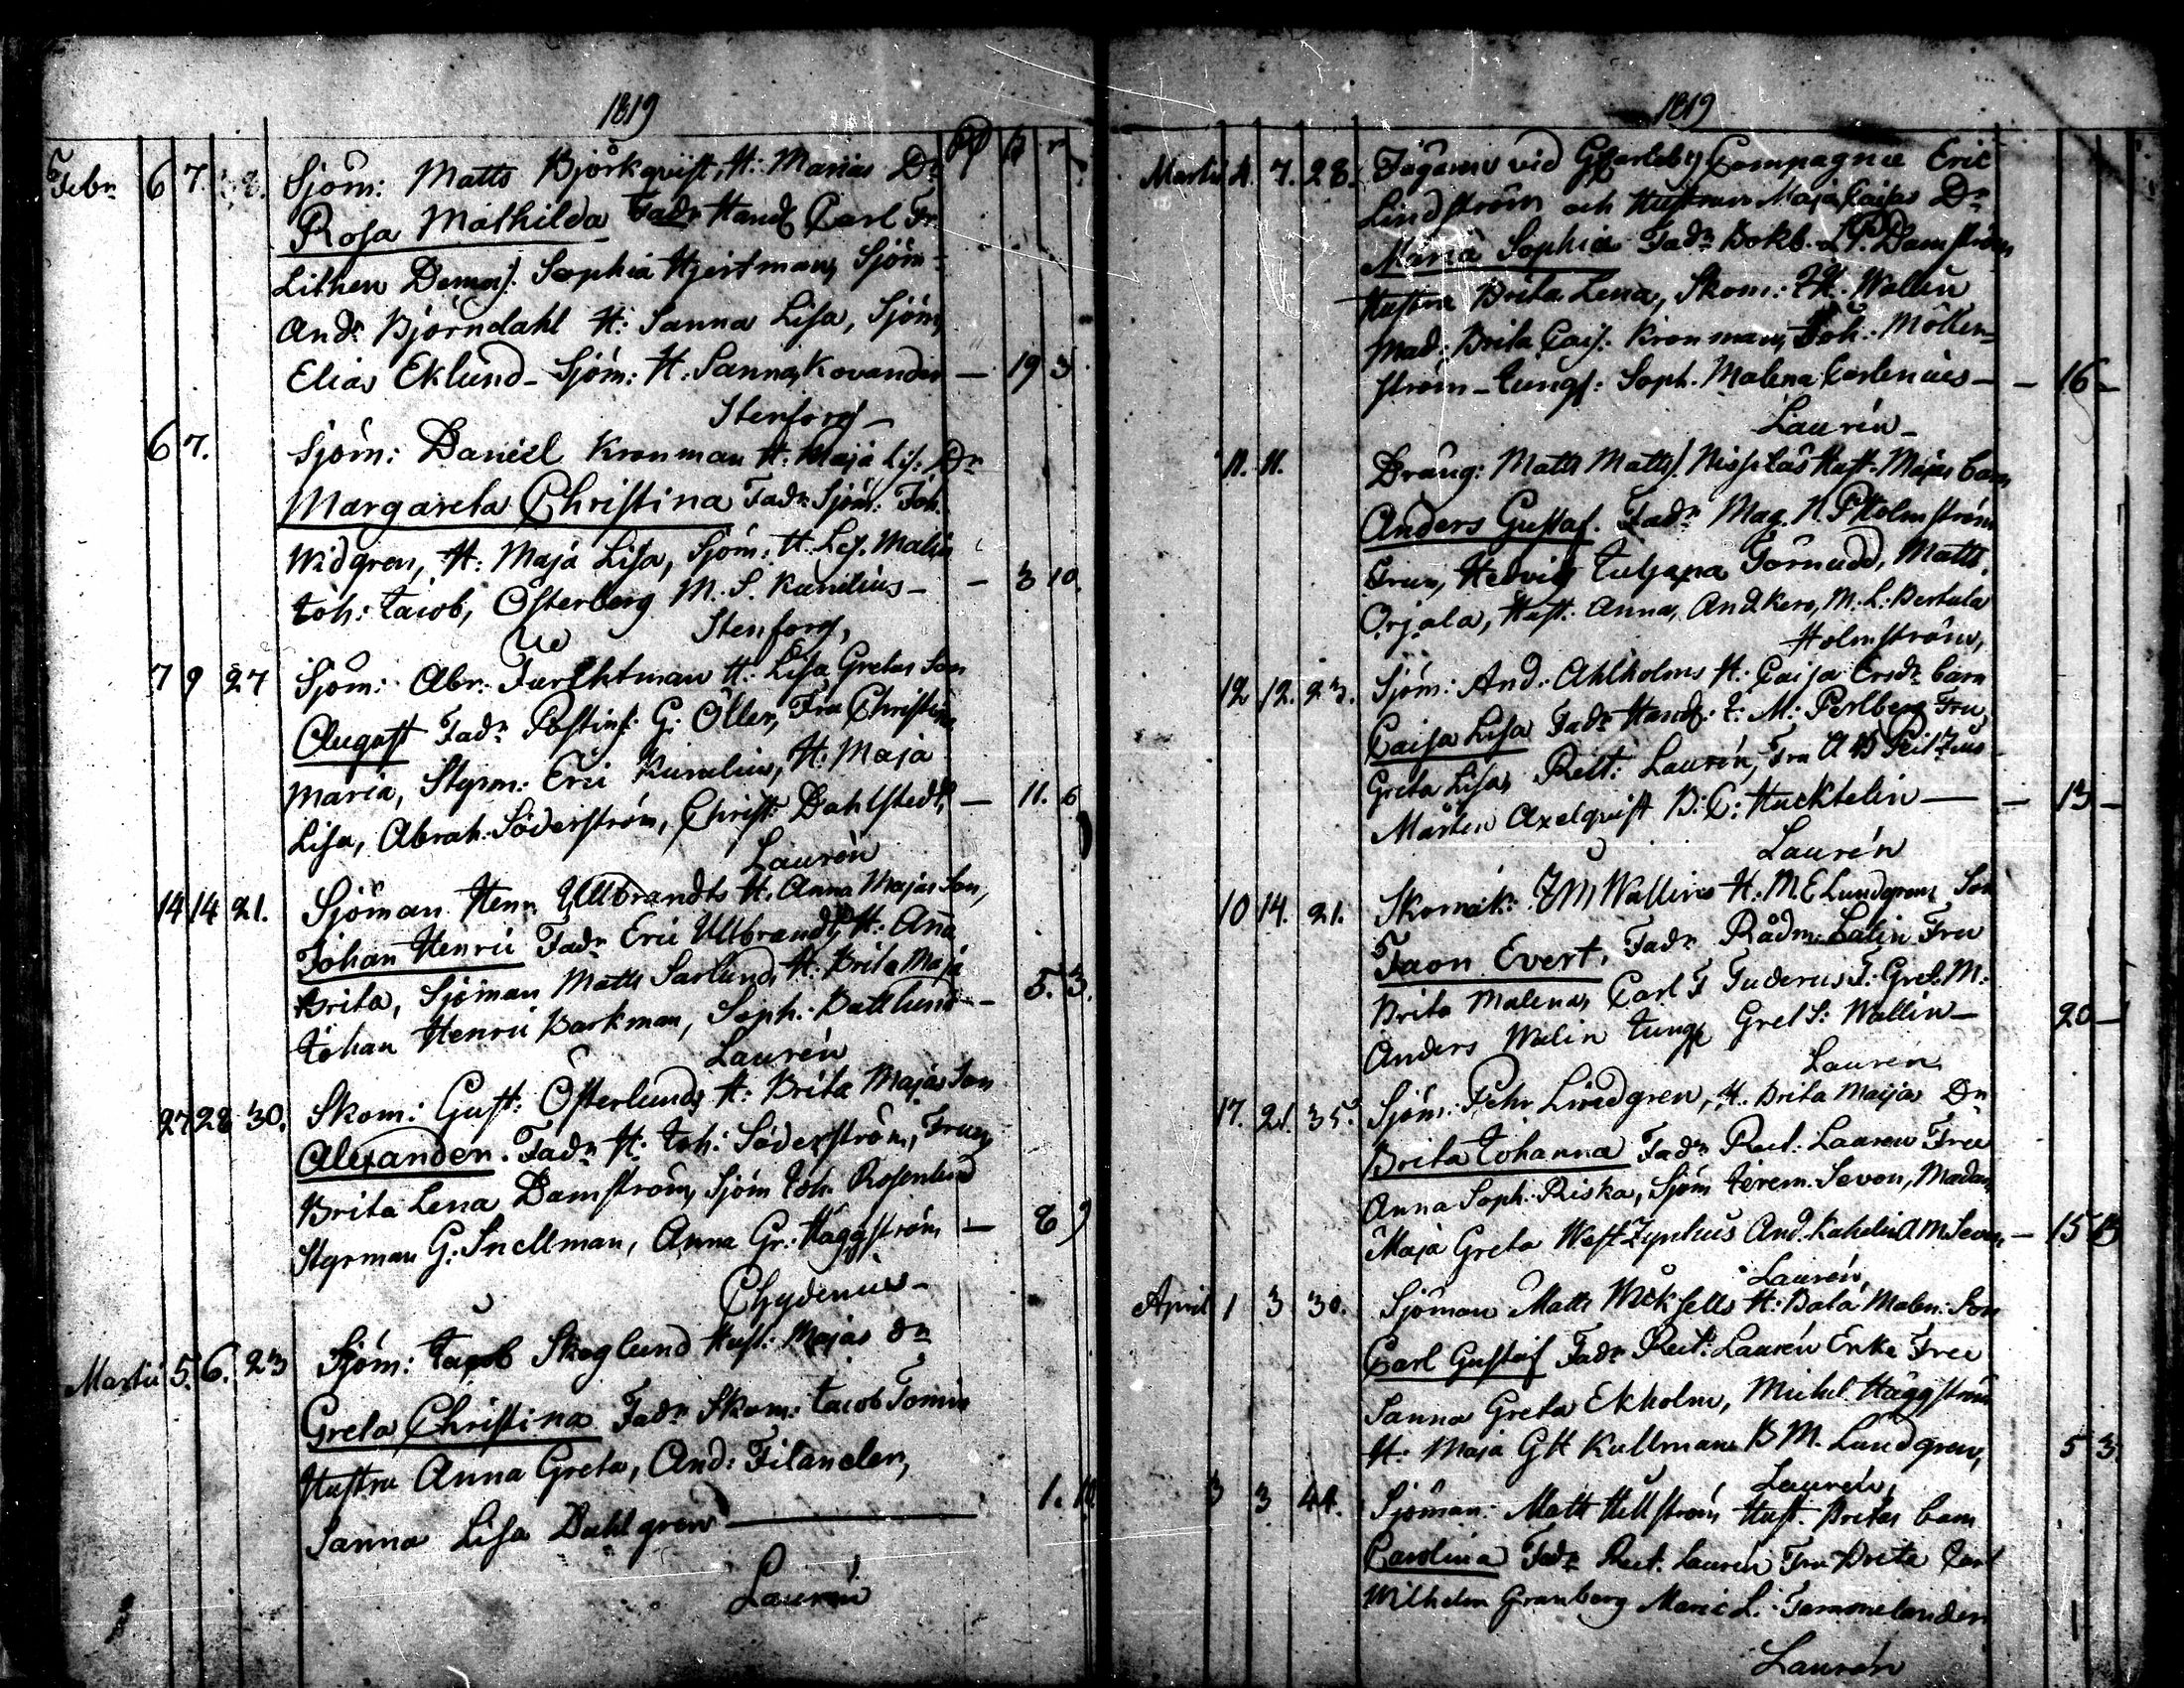 1819
Febr 6 7. Sjöm: Matts Björkqvist, H: Marias Dr
Rosa Mathilda Fadr Handl Carl Fr
Lithen Demois: Sophia Hjertman, Sjöm:
And: Björndahl H: Sanna Lisa, Sjöm,
Elias Eklund - Sjöm: H: Sanna Kovander — 19 3
Stenfors —
6 7. Sjöm: Daniel Kronman H: Maja Lis: Dr
Margareta Christina Fadr Sjöm: Joh.
Widgren, H: Maja Lisa, Sjöm: H. Malin
Joh: Jacob, Österberg M. S. Kunelius — — 3 10
Stenfors,
7 9 27 Sjöm: Abr: H: Lisa Gretas Son
August Fadr Postinsp: G: Öller, Fru Christina
Maria, Styrm: Eric Kunelius, H: Maja
Lisa, Abrah: Söderström, Christ: Dahlstedt, — 11. 6
Laurén
14 14 21. Sjöman Henr Ullbrandts H. Anna Majas Son,
Johan Henric Fadr Eric Ullbrandt, H: Anna
Brita, Sjöman Matts Sarlund, H: Brita Maja
Johan Henric Backman, Soph: Battlund — 5. 3.
Laurén
27 28 30. Skom: Gust: Österlunds H: Brita Majas Son
Alexander. Fadr H: Joh: Söderström, Frun
Brita Lena Damström, Sjöm Joh. Rosenlund
Styrman G. Snellman, Anna Gr: Häggström — 8 9
Chydenius —
Martii 5. 6. 23 Sjöm: Jacob Skoglund Hust: Majas dr
Greta Christina Fadr Skom: Jacob Tomin
Hustru Anna Greta, And: Filander,
Sanna Lisa Dahlgren — 1.
Laurén
1819
Martii 4. 7. 28. Jägaren vid GCarleby Compagnie Eric
Lindström och Hustrun Maja Caisas Dr
Maria Sophia Fadr Bokb. L.P. Damström
Hustru Brita Lena, Skom: Wallin
Mad: Brita Cais: Kronman, Joh: Möllen-
ström - Jungf: Soph. Malena Carlenius — — 16 —
Laurén —
11. 11. Dräng: Matts Matts: Hust. Majas barn
Anders Gustaf. Fadr Mag. N. P Holmström
Frun, Hedvig Juliana Törnudd, Matts
Orjala, Hust: Anna, And Kero, M: L: Bertula
Holmström,
12 12. 23. Sjöm: And: Ahlholms H: Caisa Ersdr barn
Caisa Lisa Fadr Handl: J: M: Perlberg Fru
Greta Lisa, Rect: Laurén, Fru
Mårten Axelqvist B: C: Hucktelin — — 13 —
Laurén
10 14. 21. Skomak: J M Wallins H: M E Lundgrens Son
Evert. Fadr Rådm: Lalin Fru
Brita Malena, Carl F Tuderus F: Gret: M:
Anders Walin Jungf Gret S: Wallin — 20 —
Laurén
17. 21. 35. Sjöm: Pehr Lindgren, H. Brita Maijas Dr
Brita Johanna Fadr Rect: Lauren Fru
Anna Soph: Riska, Sjöm Jerem. Sevon, Madam
Maja Greta Westzynthius And. Kahelin A M Sevon — 15
Laurén,
April 1 3 30. Sjöman Matts H: Malen: Son
Carl Gustaf Fadr Rect: Laurén Enke Fru
Sanna Greta Ekholm, Michel Häggström
H: Maja G H Kullman B M. Lundgren, 5 3.
Laurén,
3 3 44. Sjöman: Matts Hellström Hust. Britas barn
Carolina Fadr Rect. Laurén Fru Brita Carl
Wilhelm Granberg Maria L: 1
Laurén